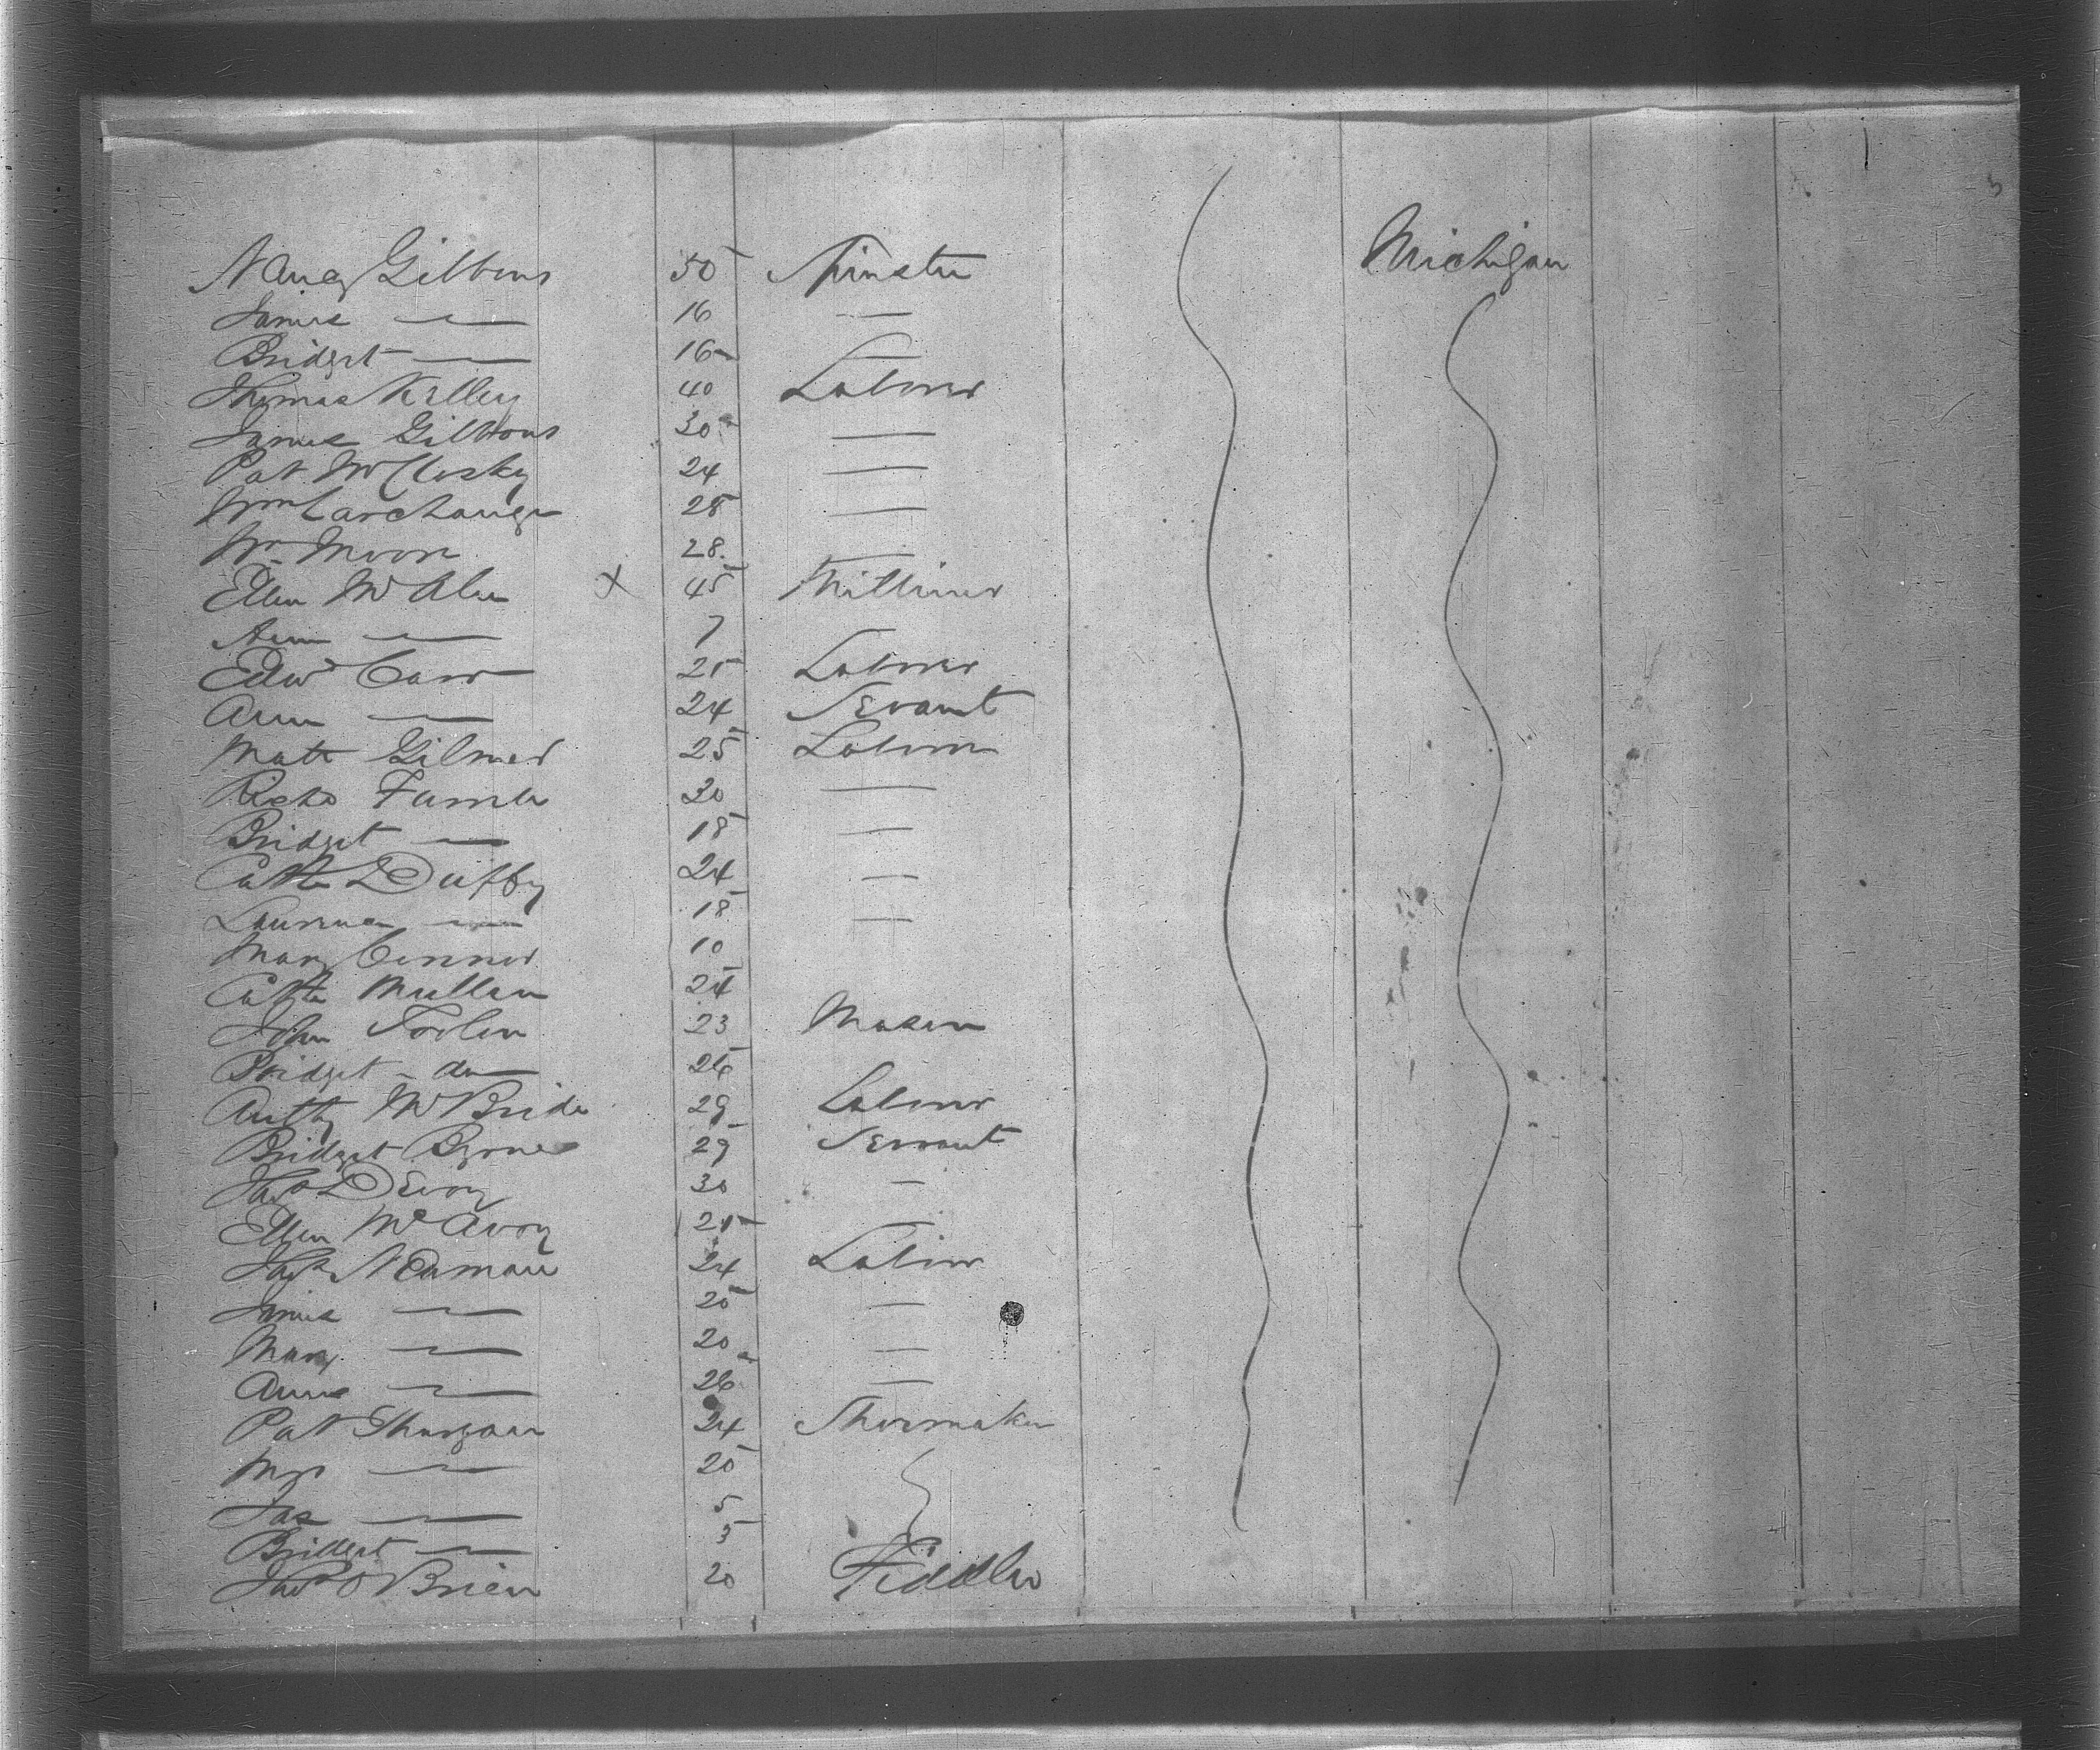 Nancy Gibbons 50 Spinster Michigan
James — 16 —
Bridget — 16 —
Thomas Kelley 40 Laborer
James Gibbons 30 —
Pat McClosky 24 —
Wm 28 —
Wm Moore 28 —
Ellen McAlee x 45 Milliner
Ann — 7 —
Edwd Carr 25 Laborer
Ann — 24 Servant
Matt Gilmer 25 Laborer
Richd 30 —
Bridget — 18 —
Cathe Duffy 24 —
Laurence — 18 —
Mary Connor 10
Cathe Mullan 24
John 23 Mason
Bridget - do 26
Anthy McBride 29 Laborer
Bridget Byrne 29 Servant
Devoy 30 —
Ellen McAvoy 25 —
Neaman 24 Laborer
James — 25 —
Mary — 20 —
Anne — 26 —
Pat 24 Shoemaker
— 25
Jas — 5
Bridget — 3
O'Brien 20 Fiddler